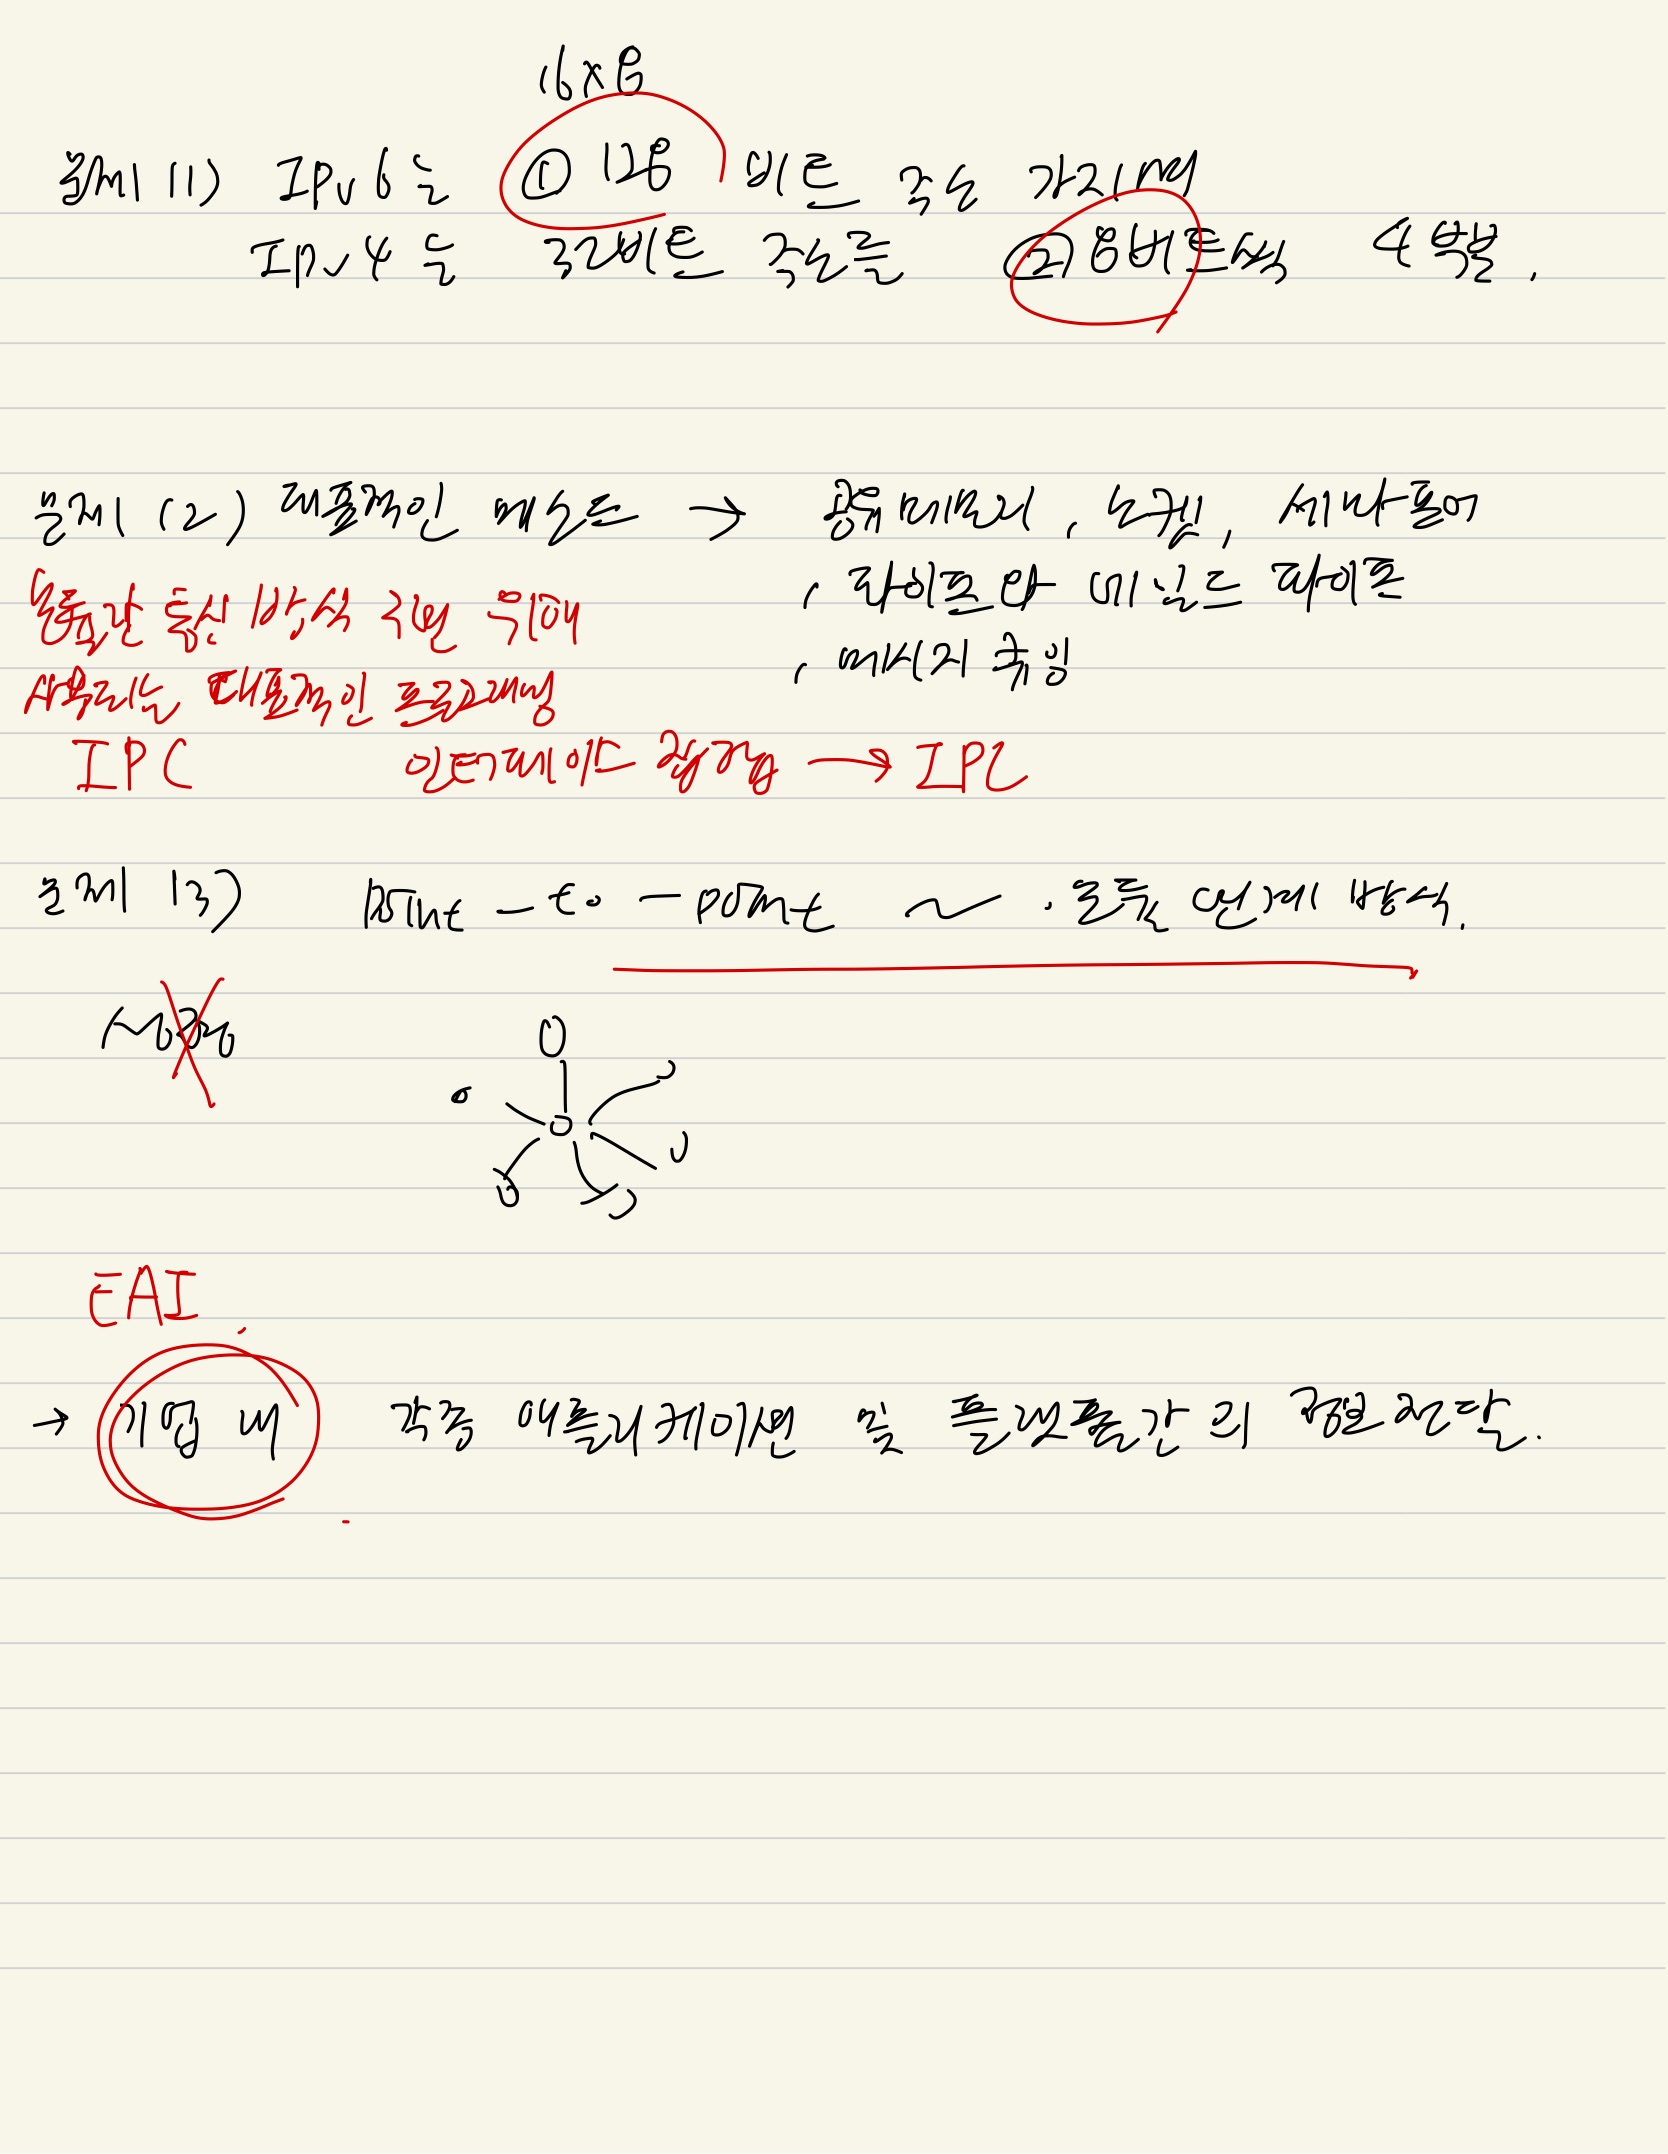 16x8
문제 11) IPv6는 ① 128 비트 주소 가지며
IPv4는 32비트 주소를 ② 8비트씩 4부분.
문제 12) 대표적인 메소드 → 공유메모리, 소켓, 세마포어
모듈간 통신 방식 구현 위해
, 파이프와 네임드 파이프
, 메시지 큐잉
사용되는 대표적인 프로그래밍
IPC 인터페이스 집합 → IPC
문제 13) Point - to - point ~ . 모듈 연계 방식.
EAI
→ 기업 내 각종 애플리케이션 및 플랫폼간의 정보전달.